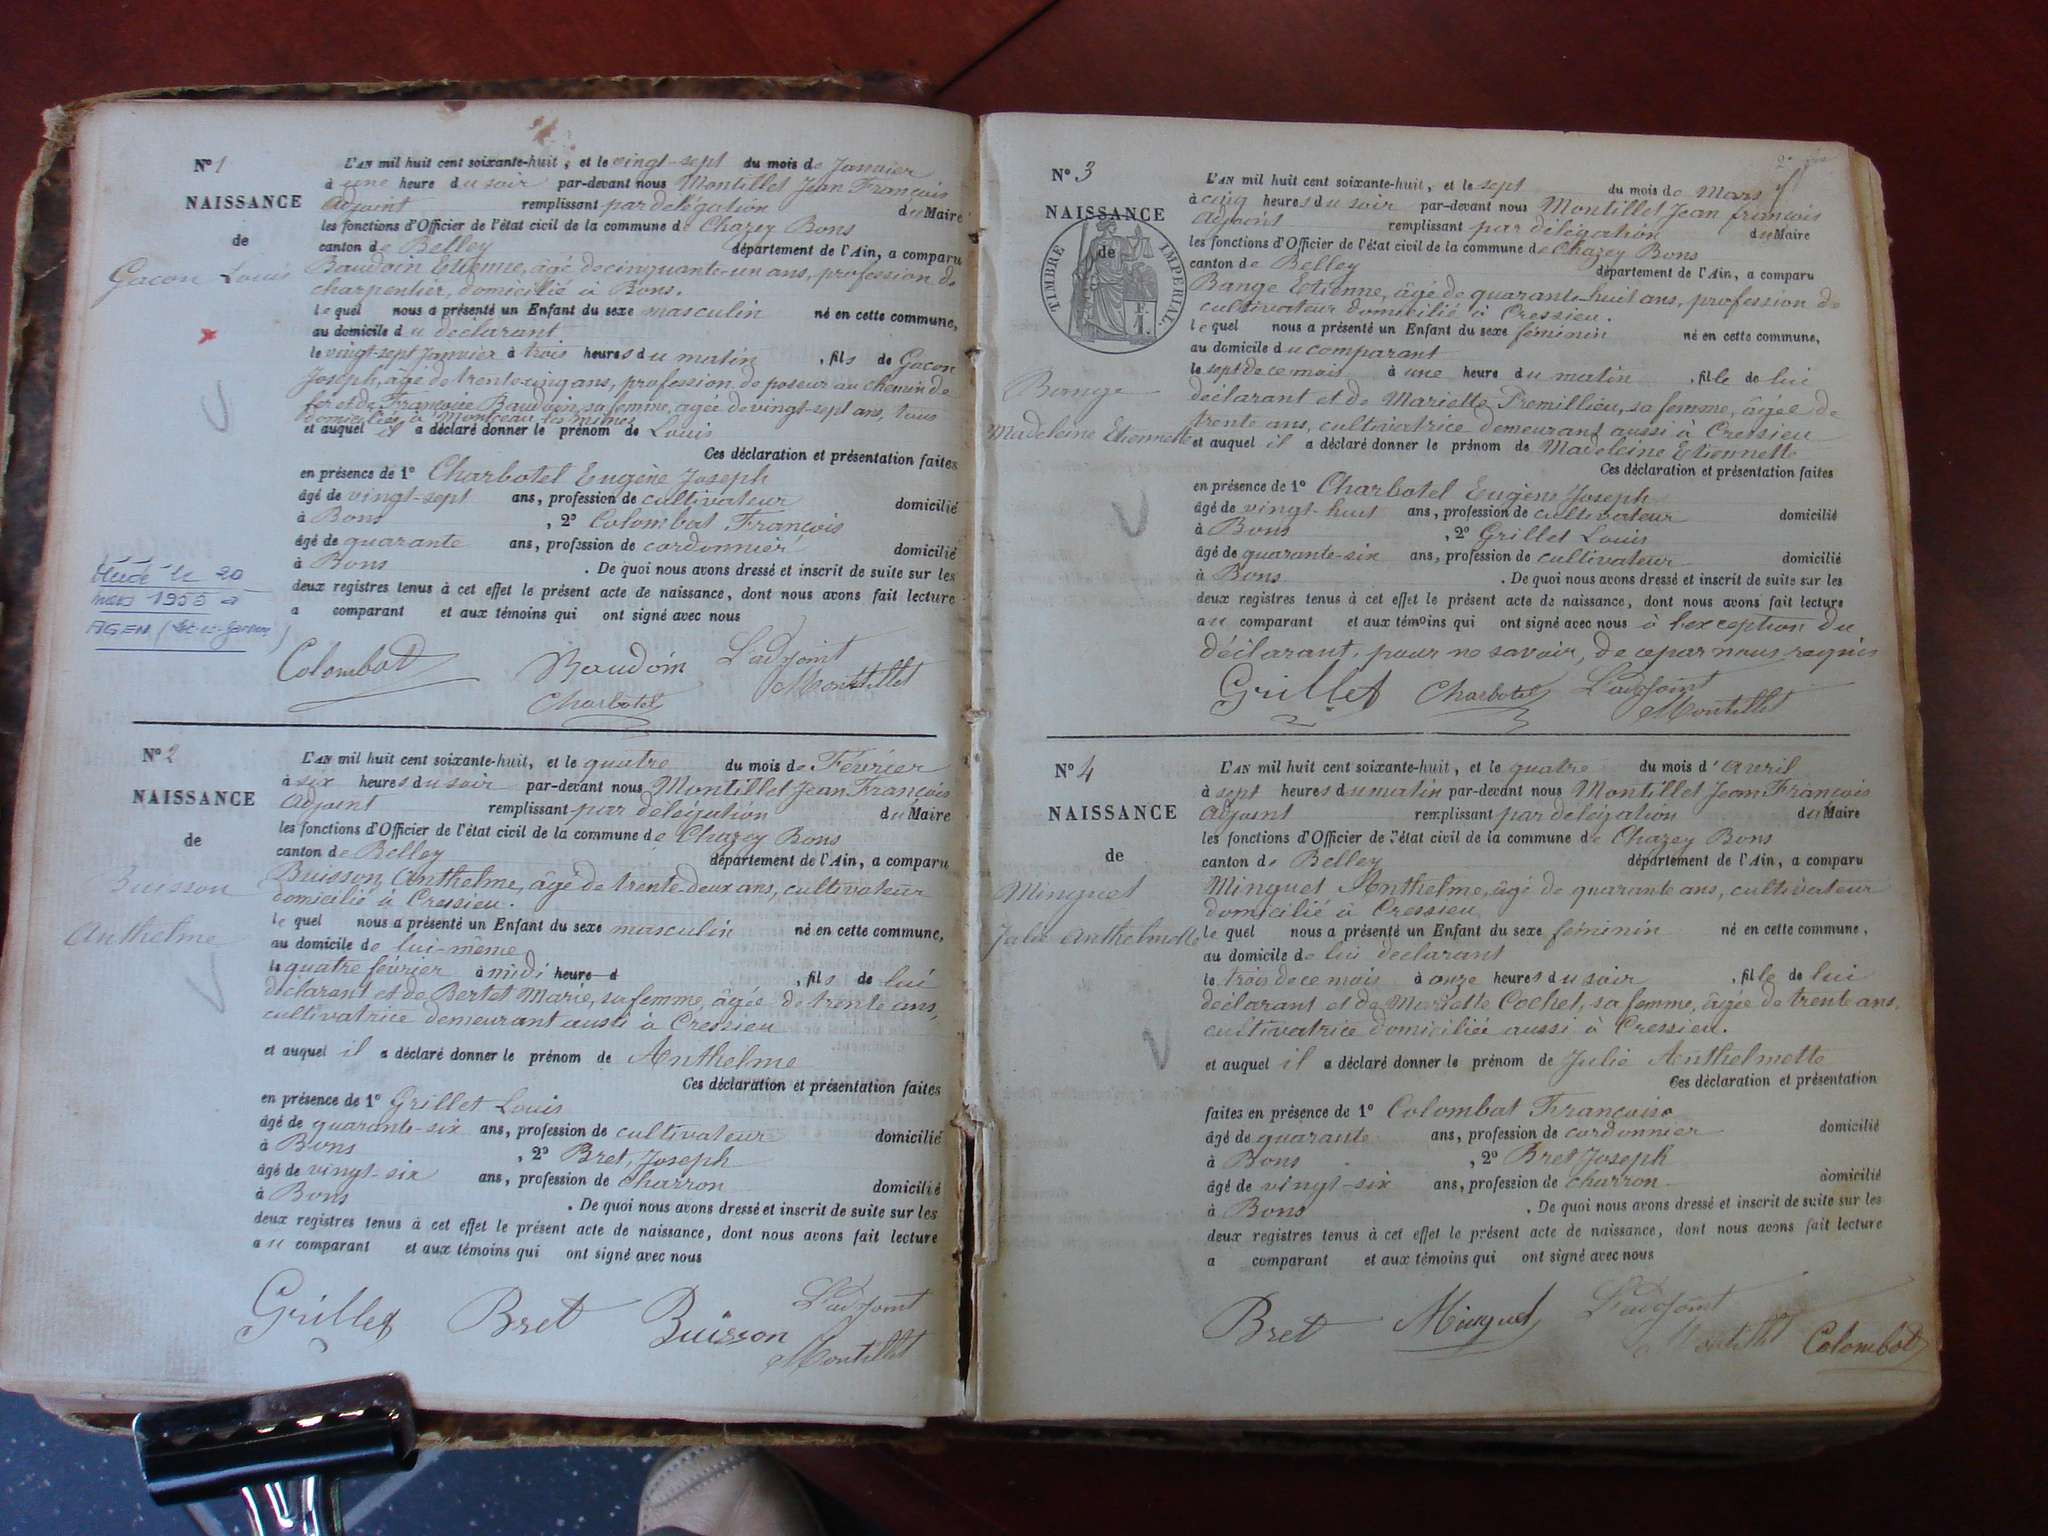 N° 1
NAISSANCE
de
Gacon Louis
L'AN mil huit cent soixante-huit, et le vingt-sept du mois de Janvier
à une heure du soir par-devant nous Montillet Jean François
Adjoint remplissant par délégation du Maire
les fonctions d'Officier de l'état civil de la commune de Chazey Bons
canton de Belley département de l'Ain, a comparu
Baudoin Etienne, âgé de cinquante-un ans, profession de
charpentier, domicilié à Bons.
le quel nous a présenté un Enfant du sexe masculin né en cette commune,
au domicile du déclarant
le vingt-sept Janvier à trois heures du matin, fils de Gacon
Joseph, âgé de trente-cinq ans, profession de poseur au chemin de
fer et de Françoise Baudoin, sa femme, âgée de vingt-sept ans, tous
domiciliés à Montceau les mines
et auquel il a déclaré donner le prénom de Louis
Ces déclaration et présentation faites
en présence de 1° Charbotel Eugène Joseph
âgé de vingt-sept ans, profession de cultivateur domicilié
à Bons, 2° Colombat François
âgé de quarante ans, profession de cordonnier domicilié
à Bons. De quoi nous avons dressé et inscrit de suite sur les
deux registres tenus à cet effet le présent acte de naissance, dont nous avons fait lecture
a comparant et aux témoins qui ont signé avec nous
le 20
mars 1955 à
AGEN (Lot-et-Garonne)
Colombat Baudoin L'adjoint
Charbotel Montillet
N° 2
NAISSANCE
de
Buisson
Anthelme
L'AN mil huit cent soixante-huit, et le quatre du mois de Février
à six heures du soir par-devant nous Montillet Jean François
Adjoint remplissant par délégation du Maire
les fonctions d'Officier de l'état civil de la commune de Chazey Bons
canton de Belley département de l'Ain, a comparu
Buisson Anthelme, âgé de trente-deux ans, cultivateur
domicilié à Cressieu.
le quel nous a présenté un Enfant du sexe masculin né en cette commune,
au domicile de lui-même
le quatre février à midi heure d, fils de lui
déclarant et de Bertet Marie, sa femme, âgée de trente ans,
cultivatrice demeurant aussi à Cressieu
et auquel il a déclaré donner le prénom de Anthelme
Ces déclaration et présentation faites
en présence de 1° Grillet Louis
âgé de quarante-six ans, profession de cultivateur domicilié
à Bons, 2° Bret, Joseph
âgé de vingt-six ans, profession de charron domicilié
à Bons. De quoi nous avons dressé et inscrit de suite sur les
deux registres tenus à cet effet le présent acte de naissance, dont nous avons fait lecture
au comparant et aux témoins qui ont signé avec nous
Grillet Bret Buisson L'adjoint
Montillet
N° 3
NAISSANCE
de
TIMBRE IMPERIAL.
F.
1.
Bange
Madeleine Etiennette
L'AN mil huit cent soixante-huit, et le sept du mois de Mars
à cinq heures du soir par-devant nous Montillet Jean françois
Adjoint remplissant par délégation du Maire
les fonctions d'Officier de l'état civil de la commune de Chazey Bons
canton de Belley département de l'Ain, a comparu
Bange Etienne, âgé de quarante-huit ans, profession de
cultivateur domicilié à Cressieu.
le quel nous a présenté un Enfant du sexe féminin né en cette commune,
au domicile du comparant
le sept de ce mois à une heure du matin, fille de lui
déclarant et de Mariette Premillieu, sa femme, âgée de
trente ans, cultivatrice demeurant aussi à Cressieu
et auquel il a déclaré donner le prénom de Madeleine Etiennette
Ces déclaration et présentation faites
en présence de 1° Charbotel Eugène Joseph
âgé de vingt-huit ans, profession de cultivateur domicilié
à Bons, 2° Grillet Louis
âgé de quarante-six ans, profession de cultivateur domicilié
à Bons. De quoi nous avons dressé et inscrit de suite sur les
deux registres tenus à cet effet le présent acte de naissance, dont nous avons fait lecture
au comparant et aux témoins qui ont signé avec nous à l'exception du
déclarant, pour ne savoir, de ce par nous requis
Grillet Charbotel L'adjoint
Montillet
N° 4
NAISSANCE
de
Minguet
Julie Anthelmette
L'AN mil huit cent soixante-huit, et le quatre du mois d'avril
à sept heures du matin par-devant nous Montillet Jean François
Adjoint remplissant par délégation du Maire
les fonctions d'Officier de l'état civil de la commune de Chazey Bons
canton de Belley département de l'Ain, a comparu
Minguet Anthelme, âgé de quarante ans, cultivateur
domicilié à Cressieu
le quel nous a présenté un Enfant du sexe féminin né en cette commune,
au domicile de lui déclarant
le trois de ce mois à onze heures du soir, fille de lui
déclarant et de Mariette Cochet, sa femme, âgée de trente ans,
cultivatrice domiciliée aussi à Cressieu.
et auquel il a déclaré donner le prénom de Julie Anthelmette
Ces déclaration et présentation
faites en présence de 1° Colombat François
âgé de quarante ans, profession de cordonnier domicilié
à Bons, 2° Bret Joseph
âgé de vingt-six ans, profession de charron domicilié
à Bons. De quoi nous avons dressé et inscrit de suite sur les
deux registres tenus à cet effet le présent acte de naissance, dont nous avons fait lecture
a comparant et aux témoins qui ont signé avec nous
Bret Minguet L'adjoint
Montillet Colombat